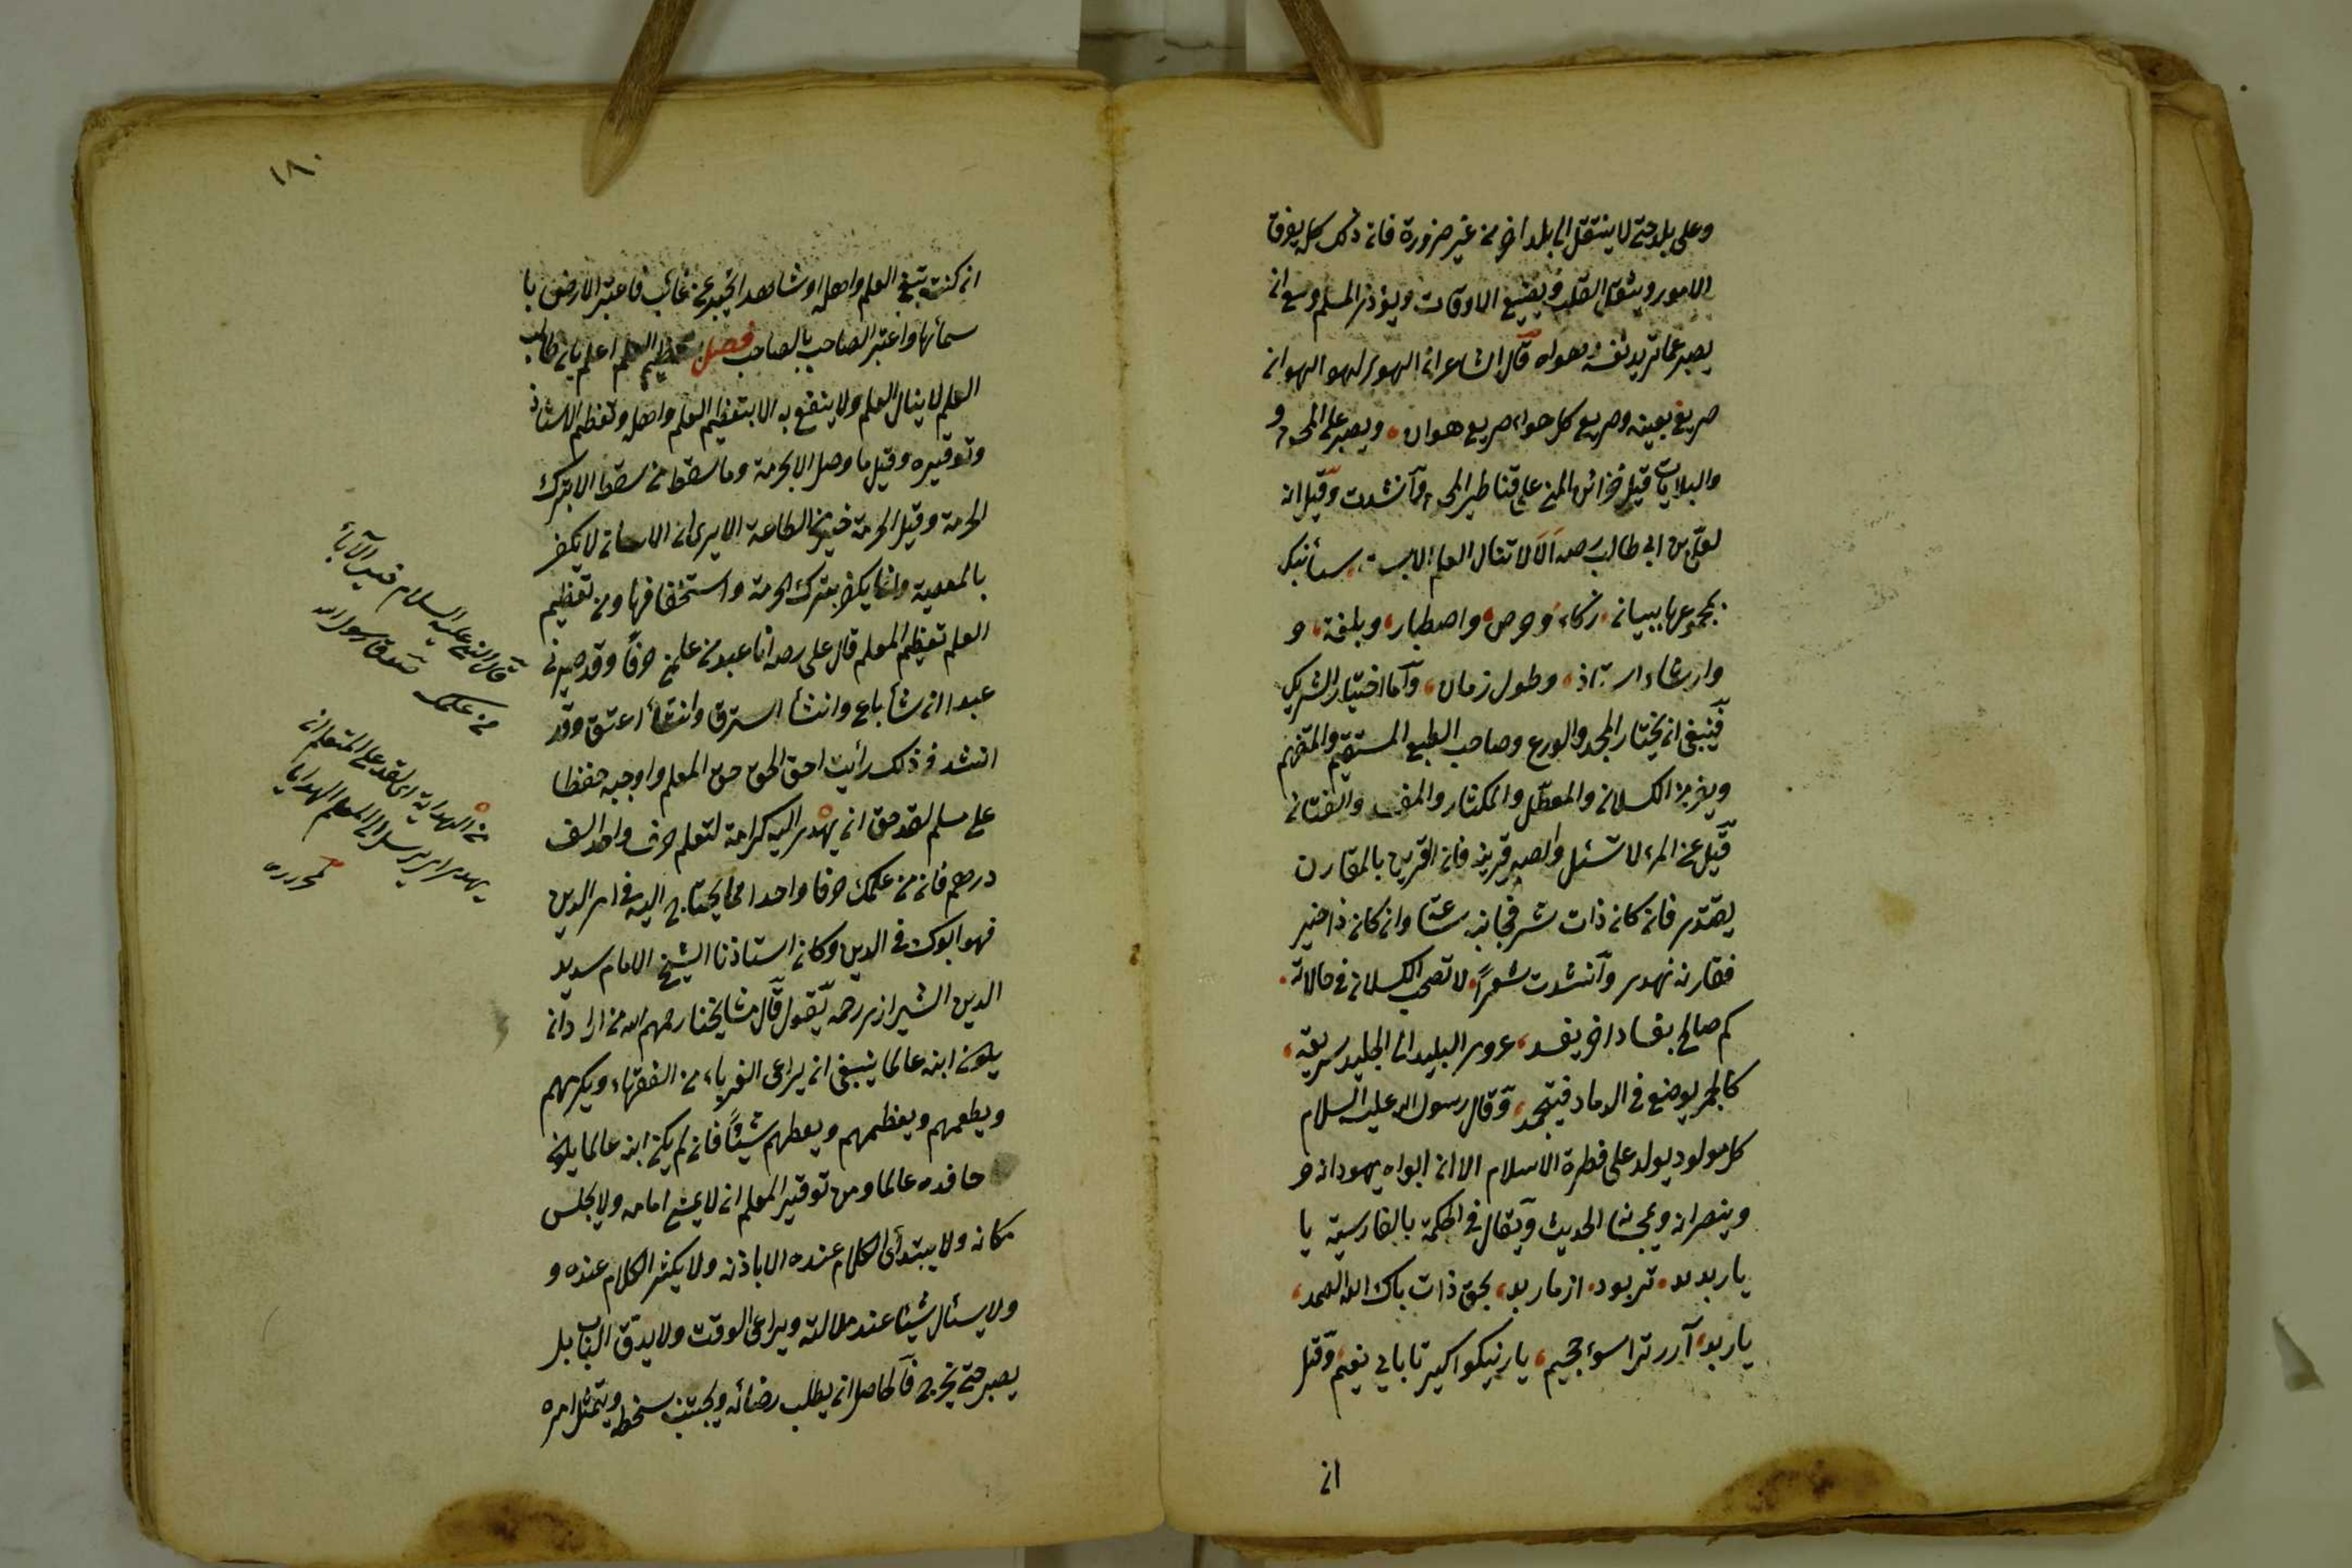 وعلى بلد حتى لا ينتقل الى بلد اخر من غير ضرورة فان ذلك كله يفرق
الامور ويشغل القلب ويضيع الاوقات ويؤذى المسلم وينبغى ان
يصبر عما تريد نفسه وهواه قال الشاعر ان الهوى لهو الهوان
صريع بعينه وصريع كل هواء صريع هوان ويصبر على المحن و
والبلايات قيل خزائن المنن على قناطير المحن وانشدت وقيل انه
لعلى بن ابى طالب رضه الا لا تنال العلم الا بستة سأنبيك
بمجموعها ببيان ذكاء وحرص واصطبار وبلغة و
وارشاد استاذ وطول زمان واما اختيار الشريك
فينبغى ان يختار المجد والورع وصاحب الطبع المستقيم والمتفهم
ويفر من الكسلان والمعطل والمكثار والمفسد والفتان
قيل عن المرء لا تسئل وابصر قرينه فان القرين بالمقارن
يقتدى فان كان ذا شر فجانبه سرعة وان كان ذا خير
فقارنه تهدى وانشدت شعرا لا تصحب الكسلان فى حالاته
كم صالح بفساد اخر يفسد عدوى البليد الى الجليد سريعة
كالجمر يوضع فى الرماد فيخمد وقال رسول الله عليه السلام
كل مولود يولد على فطرة الاسلام الا ان ابواه يهودانه و
وينصرانه ويمجسانه الحديث ويقال فى الحكمة بالفارسية يا
يار بد بد تر بود از مار بد بحق ذات پاك الله الصمد
يار بد آرد ترا سوء جحيم يار نيكو اكير تا يابى نعيم وقيل
ان
١٨٠
ان كنت تبغى العلم واهله او شاهدا يخبر عن غائب فاعتبر الارض با
سمائها واعتبر الصاحب بالصاحب فصل فى تعظيم العلم اعلم بان طالب
العلم لا ينال العلم ولا ينتفع به الا بتعظيم العلم واهله وتعظيم الاستاذ
وتوقيره وقيل ما وصل من وصل الا بالحرمة وما سقط من سقط الا بترك
الحرمة وقيل الحرمة خير من الطاعة الا يرى ان الانسان لا يكفر
بالمعصية وانما يكفر بترك الحرمة واستخفافها ومن تعظيم
العلم تعظيم المعلم قال على رضه انا عبد من علمنى حرفا وقد صيرنى
عبدا ان شأ باع وانشأ استرق وانشأ اعتق وقد
انشد فى ذلك رأيت احق الحق حق المعلم واوجبه حفظا
على مسلم لقد حق ان يهدى اليه كرامة لتعلم حرف واحد الف
درهم فان من علمك حرفا واحدا مما يحتاج اليه فى امر الدين
فهو ابوك فى الدين وكان استاذنا الشيخ الامام سديد
الدين الشيرازى رحمه يقول قال مشايخنا رحمهم الله من اراد ان
يكون ابنه عالما ينبغى ان يراعى الغرباء من الفقهاء ويكرمهم
ويطعمهم ويعظمهم ويعطيهم شيئا فان لم يكن ابنه عالما يكون
حافده عالما ومن توقير المعلم ان لا يمشى امامه ولا يجلس
مكانه ولا يبتدأ الكلام عنده الا باذنه ولا يكثر الكلام عنده و
ولا يسئال شيئا عند ملالته ويراعى الوقت ولا يدق الباب بل
يصبر حتى يخرج فالحاصل ان يطلب رضائه ويجتنب سخطه ويتمثل امره
قال النبى عليه السلام خير الآباء
من علمك صدق رسول الله
من الهداية اى لقد على المتعلم ان
يهدى اى يرسل الى المعلم الهدايا
لمحرره